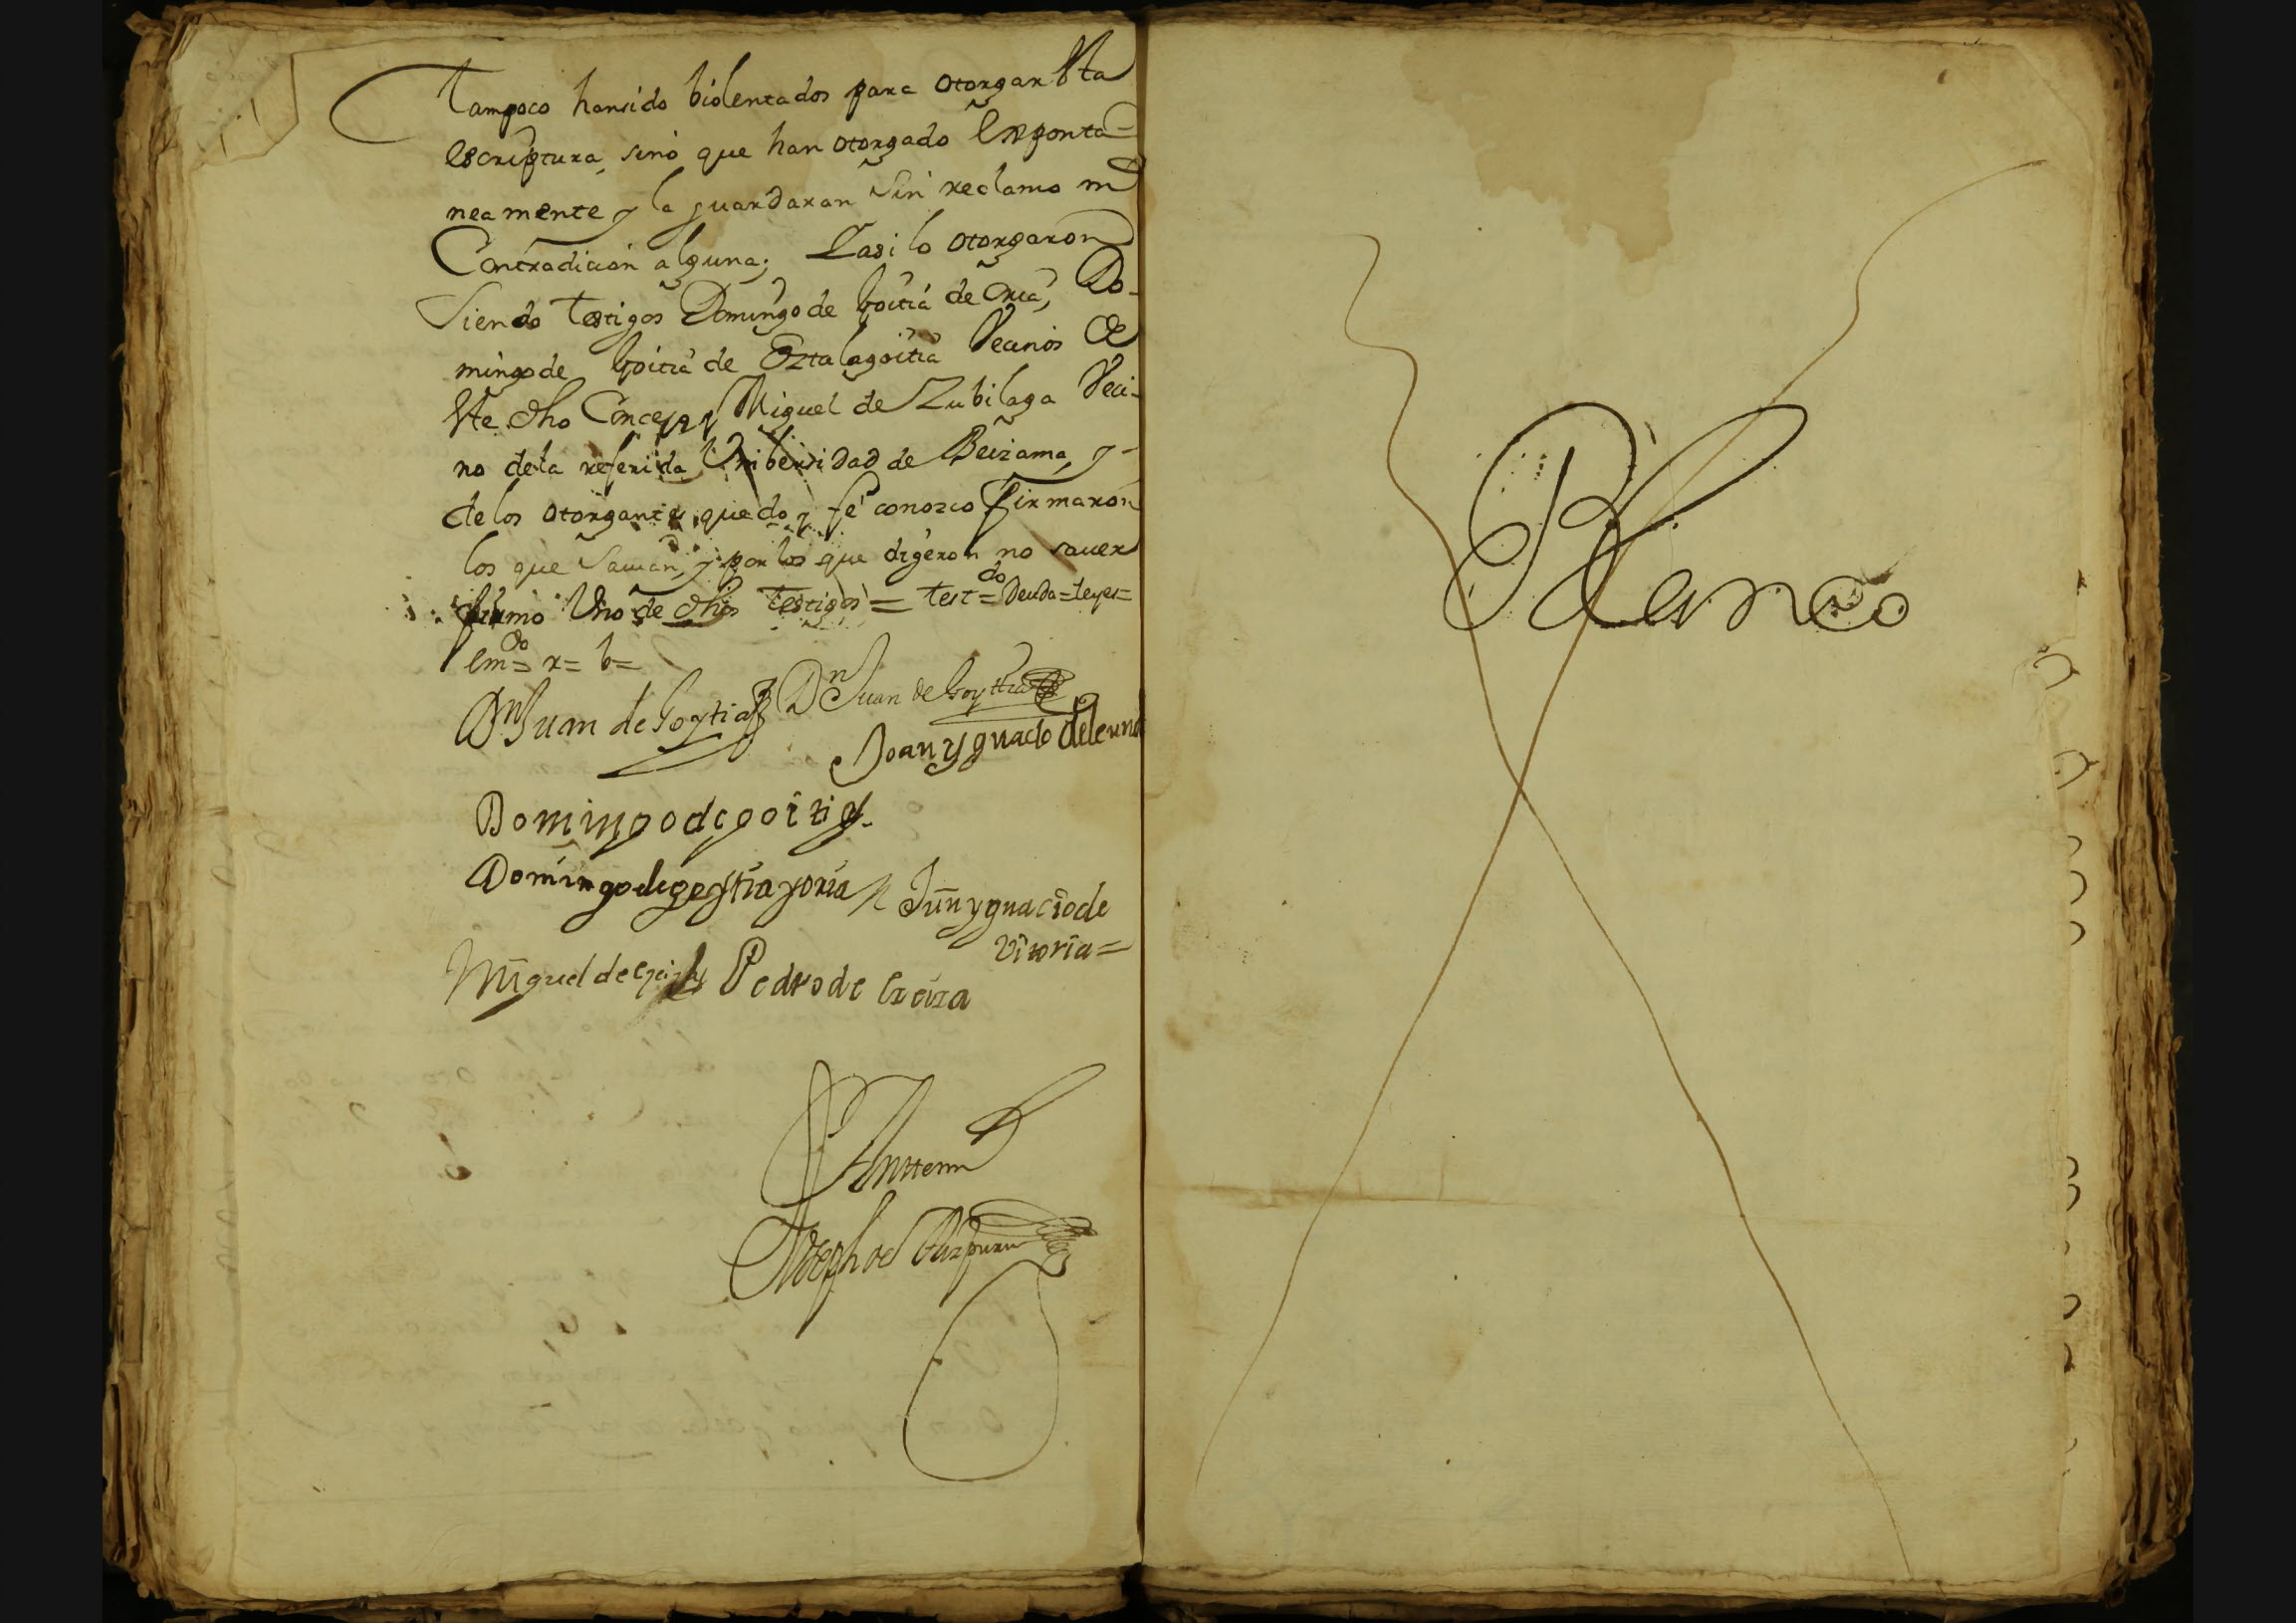 tampoco han sido biolentados para otorgar esta
escriptura, sino que han otorgado exponta=
neamente y la guardaran sin reclamo ni
Contradicion alguna; I asi lo otorgaron
siendo testigos Domingo de Goitia de Oria, Do-
mingo de Goitia de Oztalagoitia Vecinos de
este dho Concejo y Miguel de Zubilaga Veci-
no dela referida Unibersidad de Beizama, y-
de los otorgantes que doy fé conozco firmaron
los que savian, y por los que digeron no saver
firmo Uno de dhos testigos = test=do deuda=leyes=
em=do r= b=
Dn Juan de Goytia Dn Juan de Goyttia
Joan ygnacio de
Domingo de goitia
Domingo de goytia y oria Jun ygnacio de
vitoria=
Miguel de Pedro de
Antemi
Joseph de
Blanco